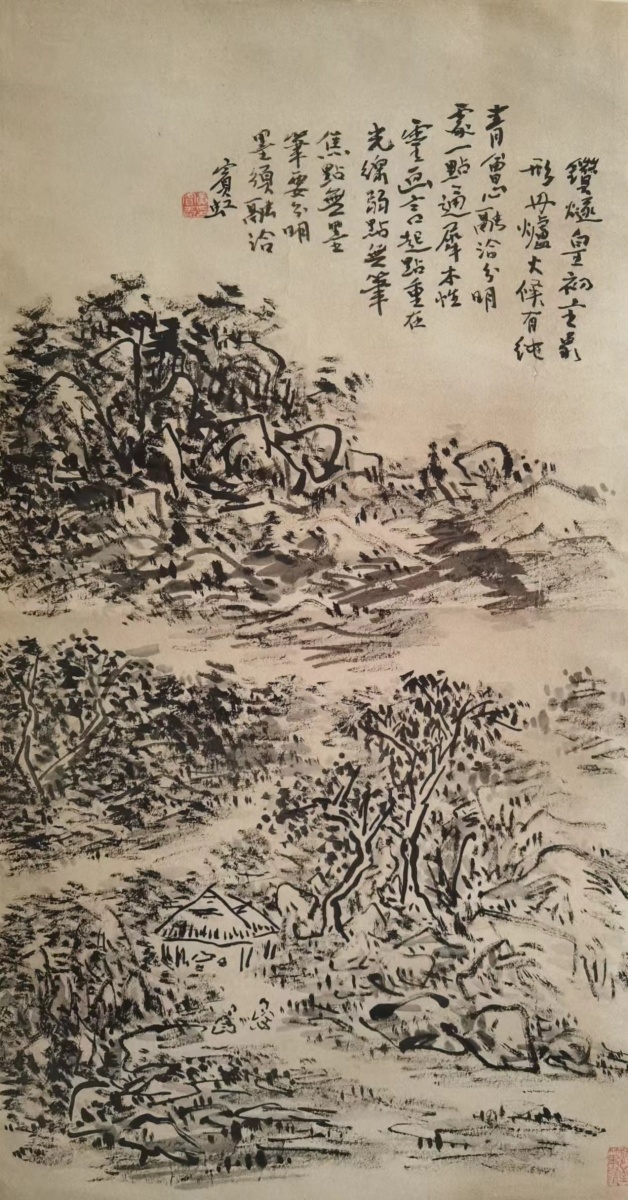 鑽燧皇初立象
形丹爐火候有純
青會心融洽分明
處一點通犀本性
靈畫言起點重在
光線弱點無筆
焦點無墨
筆要分明
墨須融洽
賓虹